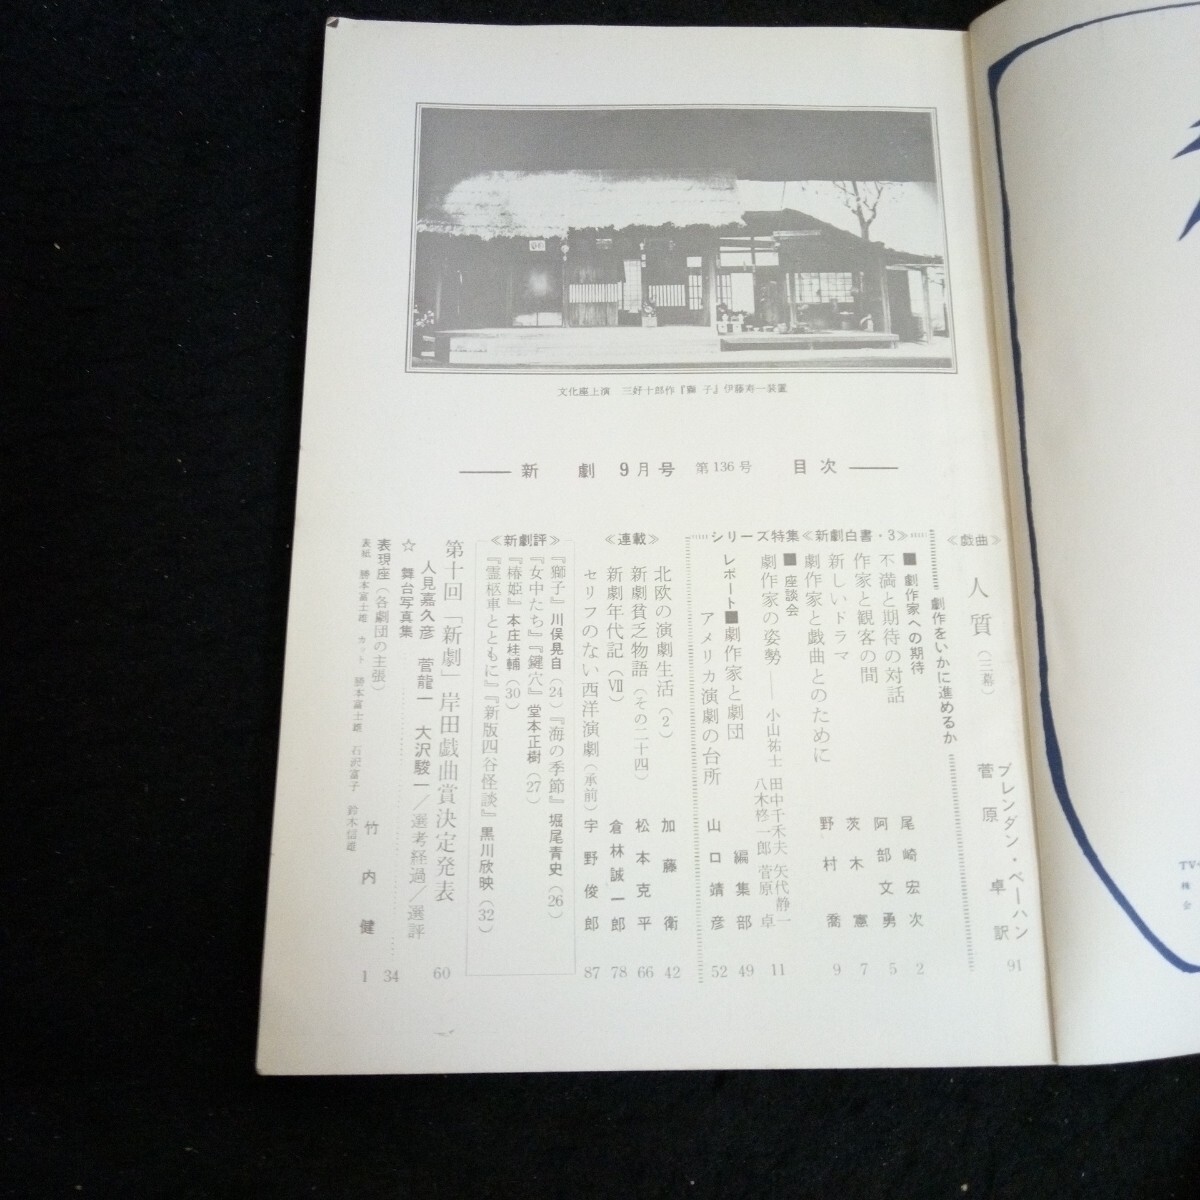 文化座上演 三好十郎作『獅子』伊藤寿一装置
新劇 9月号 第136号 目次
≪戯曲≫ 人質（三幕） ブレンダン・ベーハン 菅原卓訳 91
シリーズ特集≪新劇白書・3≫ 劇作をいかに進めるか
■劇作家への期待
不満と期待の対話 尾崎宏次 2
作家と観客の間 阿部文勇 5
新しいドラマ 茨木憲 7
劇作家と戯曲とのために 野村喬 9
■座談会
劇作家の姿勢―― 小山祐士 田中千禾夫 矢代静一 八木柊一郎 菅原卓 11
レポート■劇作家と劇団 編集部 49
アメリカ演劇の台所 山口靖彦 52
≪連載≫
北欧の演劇生活（2） 加藤衛 42
新劇貧乏物語（その二十四） 松本克平 66
新劇年代記（Ⅶ） 倉林誠一郎 78
セリフのない西洋演劇（承前） 宇野俊郎 87
≪新劇評≫
『獅子』川俣晃自（24）『海の季節』堀尾青史（26）
『女中たち』『鍵穴』堂本正樹（27）
『椿姫』本庄桂輔（30）
『霊柩車とともに』『新版四谷怪談』黒川欣映（32）
第十回「新劇」岸田戯曲賞決定発表 60
人見嘉久彦 菅龍一 大沢駿一／選考経過／選評
☆舞台写真集 34
表現座（各劇団の主張） 竹内健 1
表紙 勝本富士雄 カット 勝本富士雄 石沢富子 鈴木信雄
TV